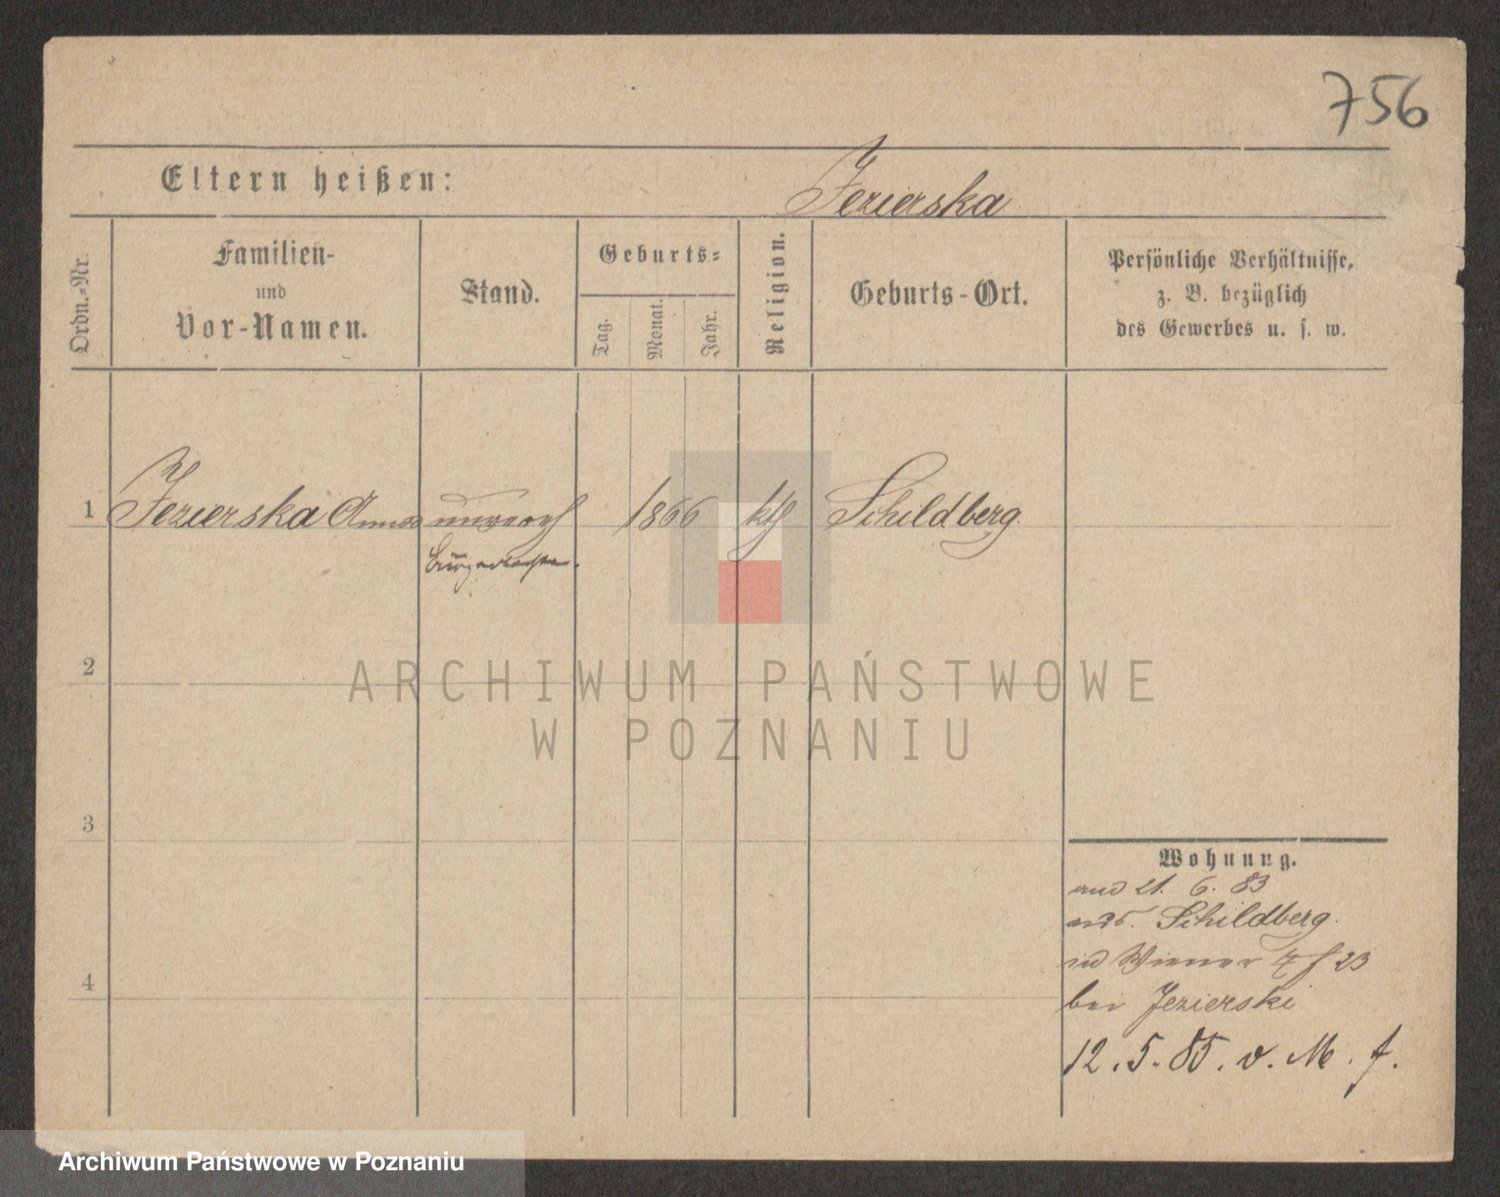 756
Eltern heißen:
Jezierska
Ordn.-Nr.
Familien-
und
Vor-Namen.
Stand.
Geburts-
Tag.
Monat.
Jahr.
Religion.
Geburts-Ort.
Persönliche Verhältnisse,
z. B. bezüglich
des Gewerbes u. s. w.
1 Jezierska Anna unverh 1866 kth Schildberg
Bürgerstochter.
ARCHIWUM PAŃSTWOWE
W POZNANIU
2
3
4
Wohnung.
21. 6. 83
Schildberg
Wiener 23
bei Jezierski
12. 5. 85. v. M. f.
Archiwum Państwowe w Poznaniu